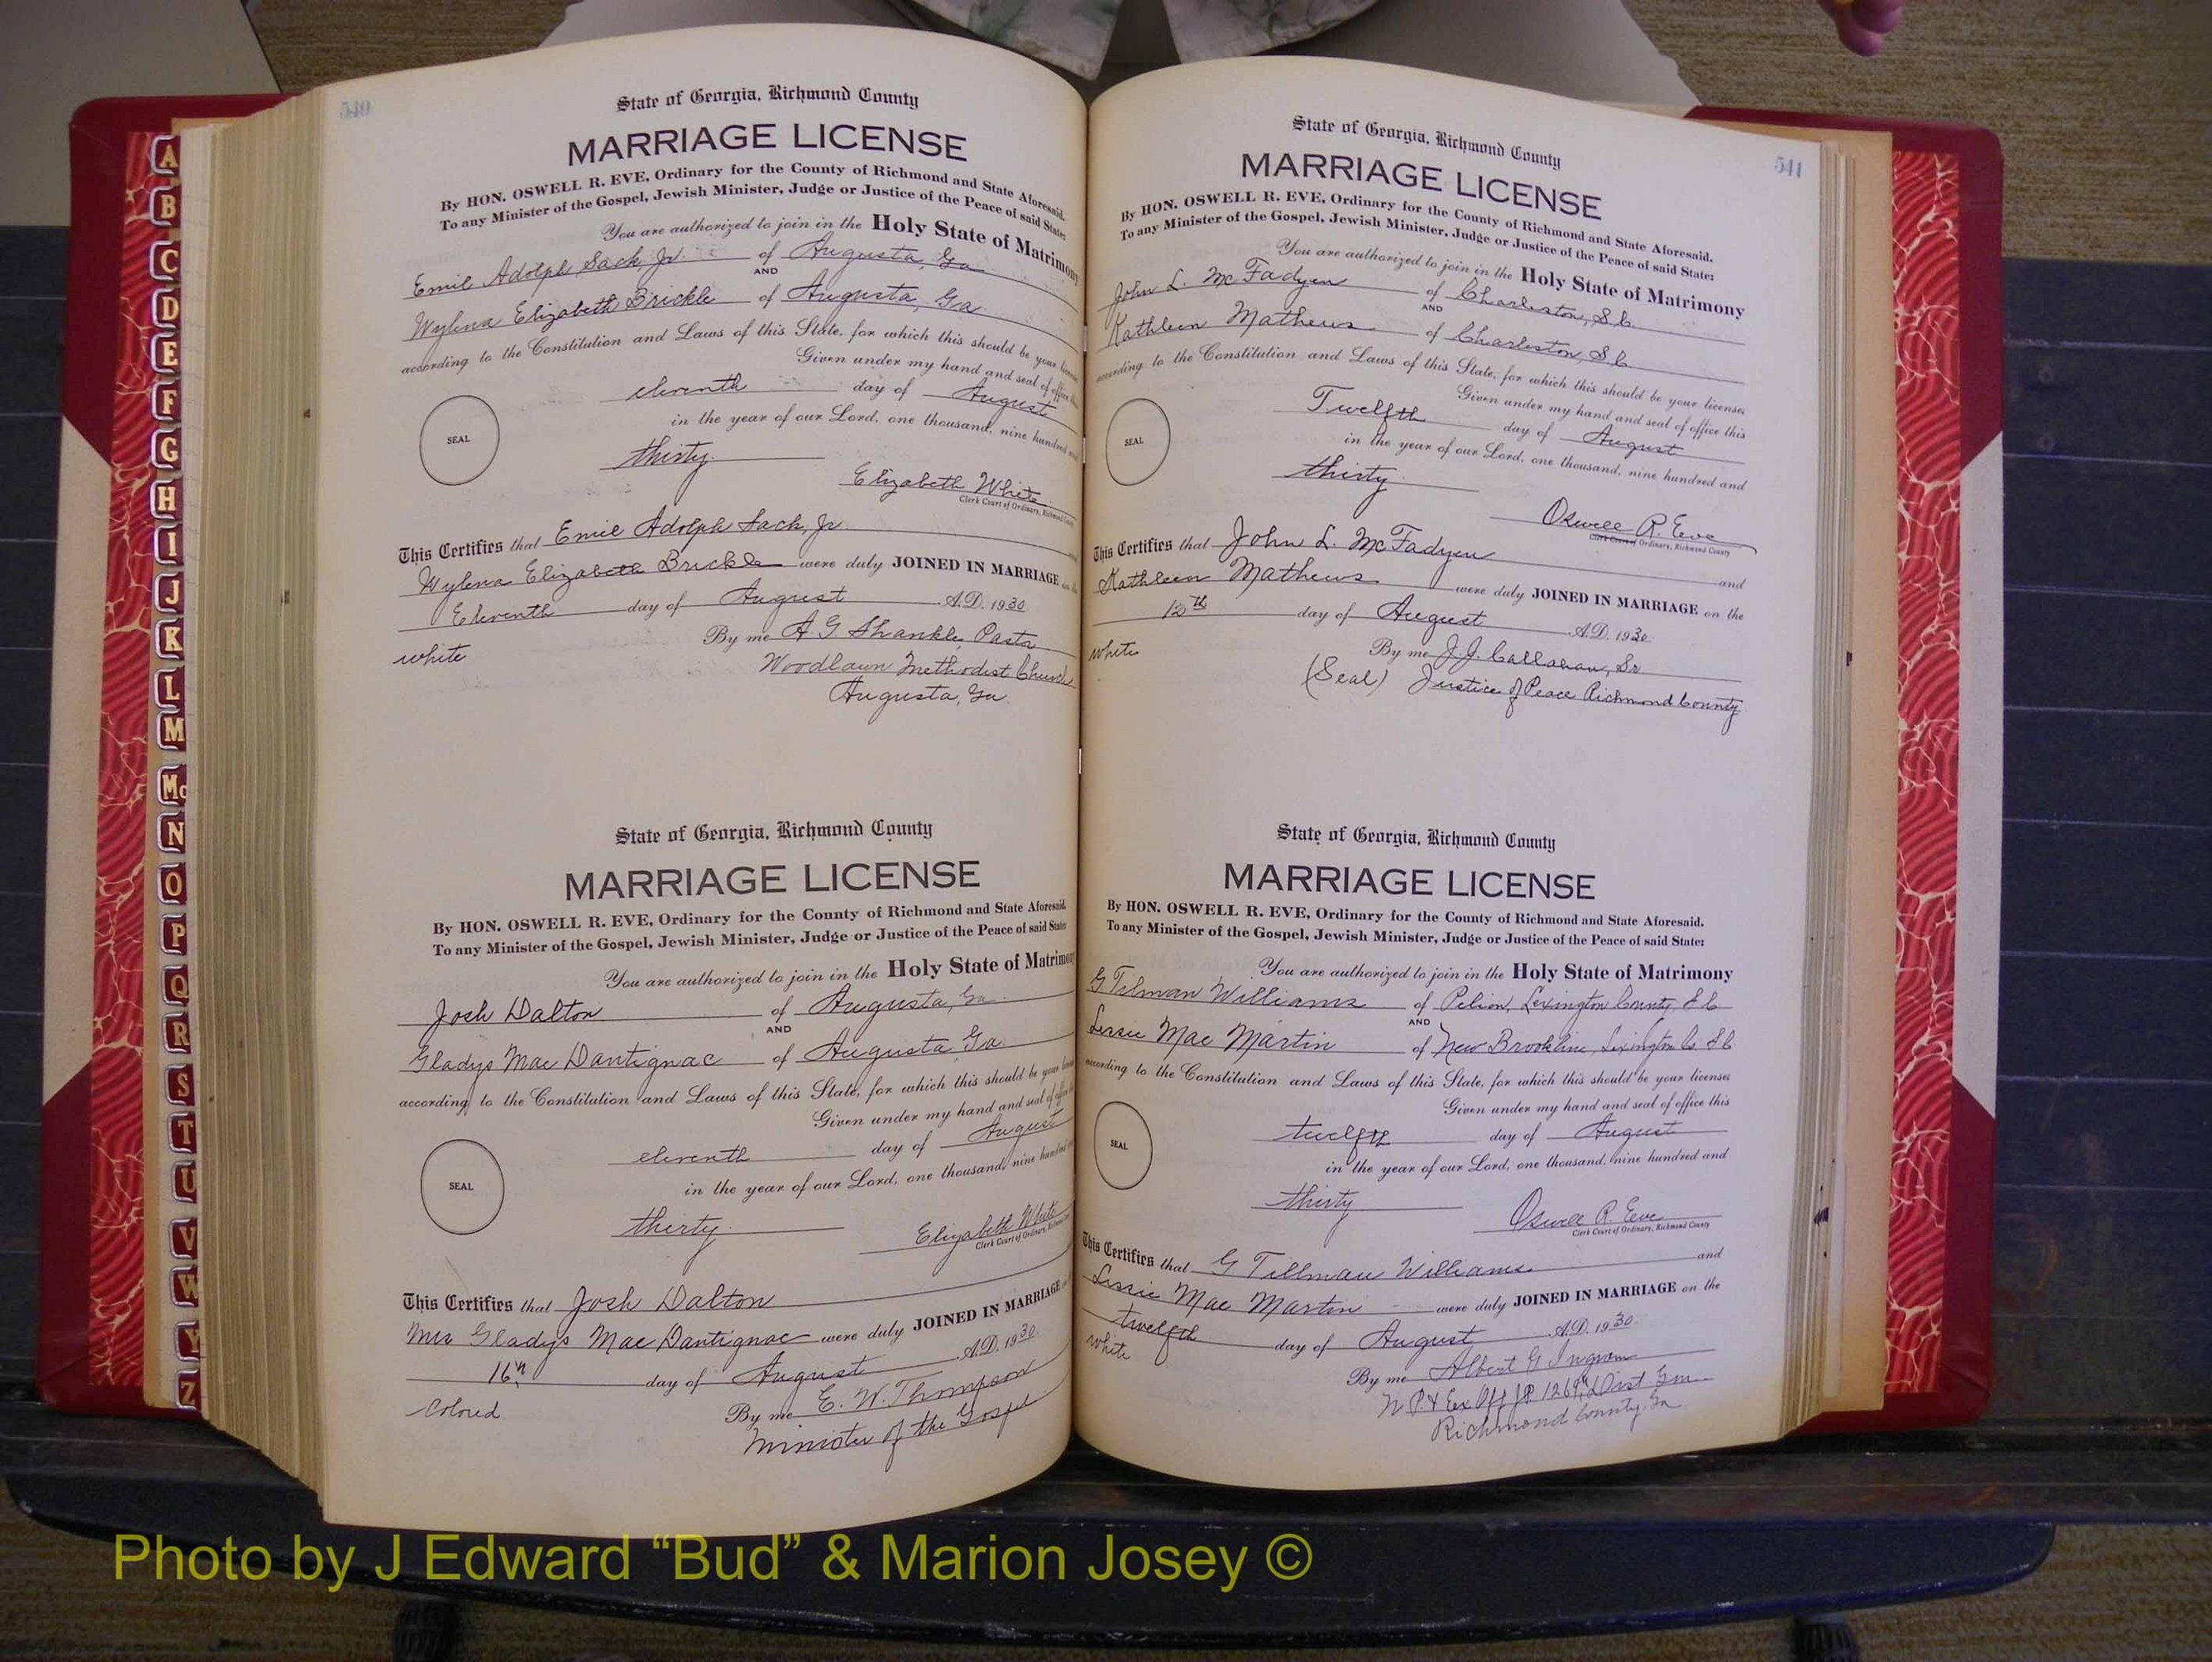 540
State of Georgia, Richmond County
MARRIAGE LICENSE
By HON. OSWELL R. EVE, Ordinary for the County of Richmond and State Aforesaid.
To any Minister of the Gospel, Jewish Minister, Judge or Justice of the Peace of said State:
You are authorized to join in the Holy State of Matrimony
Emil Adolph Sack, Jr. of Augusta, Ga
AND
Wylena Elizabeth Brickle of Augusta, Ga
according to the Constitution and Laws of this State, for which this should be your license
Given under my hand and seal of office
eleventh day of August
SEAL
in the year of our Lord, one thousand, nine hundred
thirty.
Elizabeth White
Clerk Court of Ordinary, Richmond
This Certifies that Emil Adolph Sack, Jr
Wylena Elizabeth Brickle were duly JOINED IN MARRIAGE
Eleventh day of August A.D. 1930
By me A G Shankle, Pastor
white
Woodlawn Methodist Church
Augusta, Ga.
State of Georgia, Richmond County
MARRIAGE LICENSE
By HON. OSWELL R. EVE, Ordinary for the County of Richmond and State Aforesaid.
To any Minister of the Gospel, Jewish Minister, Judge or Justice of the Peace of said State:
You are authorized to join in the Holy State of Matrimony
Josh Dalton of Augusta, Ga
AND
Gladys Mae Dantignac of Augusta Ga
according to the Constitution and Laws of this State, for which this should be your license
Given under my hand and seal of office
eleventh day of August
SEAL
in the year of our Lord, one thousand, nine hundred
thirty.
Elizabeth White
Clerk Court of Ordinary, Richmond
This Certifies that Josh Dalton
Mrs Gladys Mae Dantignac were duly JOINED IN MARRIAGE
16th day of August A.D. 1930
Colored
By me E. W. Thompson
Minister of the Gospel
541
State of Georgia, Richmond County
MARRIAGE LICENSE
By HON. OSWELL R. EVE, Ordinary for the County of Richmond and State Aforesaid.
To any Minister of the Gospel, Jewish Minister, Judge or Justice of the Peace of said State:
You are authorized to join in the Holy State of Matrimony
John L. McFadyen of Charleston, S.C.
AND
Kathleen Mathews of Charleston, S.C.
according to the Constitution and Laws of this State, for which this should be your license
Given under my hand and seal of office this
Twelfth day of August
SEAL
in the year of our Lord, one thousand, nine hundred and
thirty
Oswell R. Eve
Clerk Court of Ordinary, Richmond County
This Certifies that John L. McFadyen and
Kathleen Mathews were duly JOINED IN MARRIAGE on the
12th day of August A.D. 1930
white
By me J. J. Callahan, Sr.
(Seal) Justice of Peace Richmond County
State of Georgia, Richmond County
MARRIAGE LICENSE
By HON. OSWELL R. EVE, Ordinary for the County of Richmond and State Aforesaid.
To any Minister of the Gospel, Jewish Minister, Judge or Justice of the Peace of said State:
You are authorized to join in the Holy State of Matrimony
G Tilman Williams of Pelion, Lexington County, S C
AND
Lessie Mae Martin of New Brookline, Lexington Co S C
according to the Constitution and Laws of this State, for which this should be your license
Given under my hand and seal of office this
twelfth day of August
SEAL
in the year of our Lord, one thousand, nine hundred and
thirty
Oswell R. Eve
Clerk Court of Ordinary, Richmond County
This Certifies that G Tillman Williams and
Lessie Mae Martin were duly JOINED IN MARRIAGE on the
twelfth day of August A.D. 1930
white
By me Albert G Ingram
N P & Ex Off J P 1269th Dist Gm
Richmond County, Ga
A
B
C
D
E
F
G
H
I
J
K
L
M
Mc
N
O
P
Q
R
S
T
U
V
W
Y
Z
Photo by J Edward “Bud” & Marion Josey ©